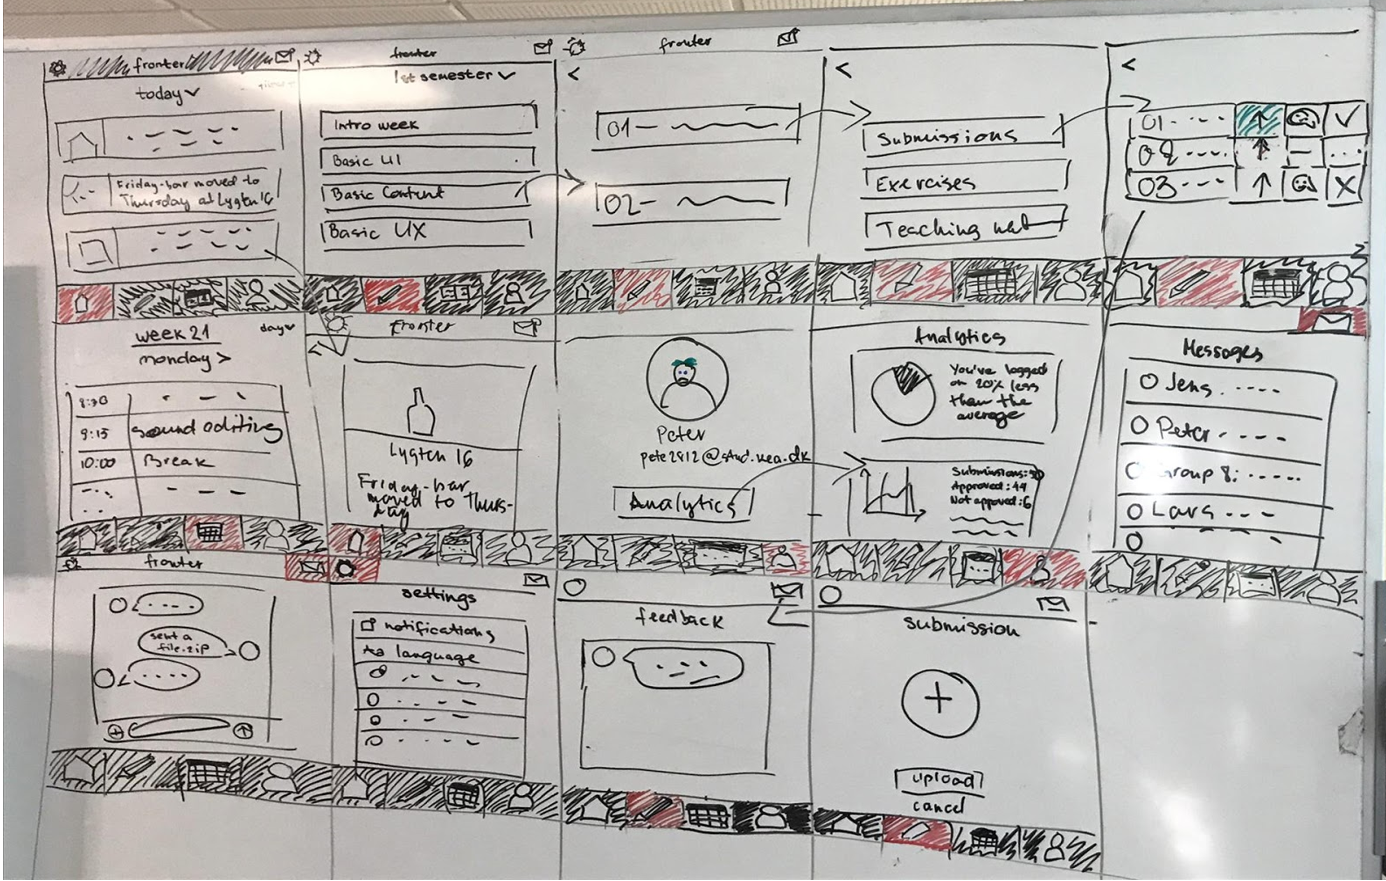 fronter
today
Friday-bar moved to
Thursday at Lygten 16
fronter
1st semester
Intro week
Basic UI
Basic Content
Basic UX
fronter
<
01
02
<
Submissions
Exercises
Teaching
<
01
02
03
week 21
day
monday >
8:30
9:15
10:00
Break
fronter
Lygten 16
Friday-bar
moved to Thurs-
day
Peter
pete2812@stud.kea.dk
Analytics
Analytics
You've logged
on 20% less
than the
average
Submissions: 50
Approved: 44
Not approved: 6
Messages
Jens
Peter
Group 8:
Lars
fronter
sent a
file.zip
settings
notifications
Aa language
feedback
submission
+
upload
cancel